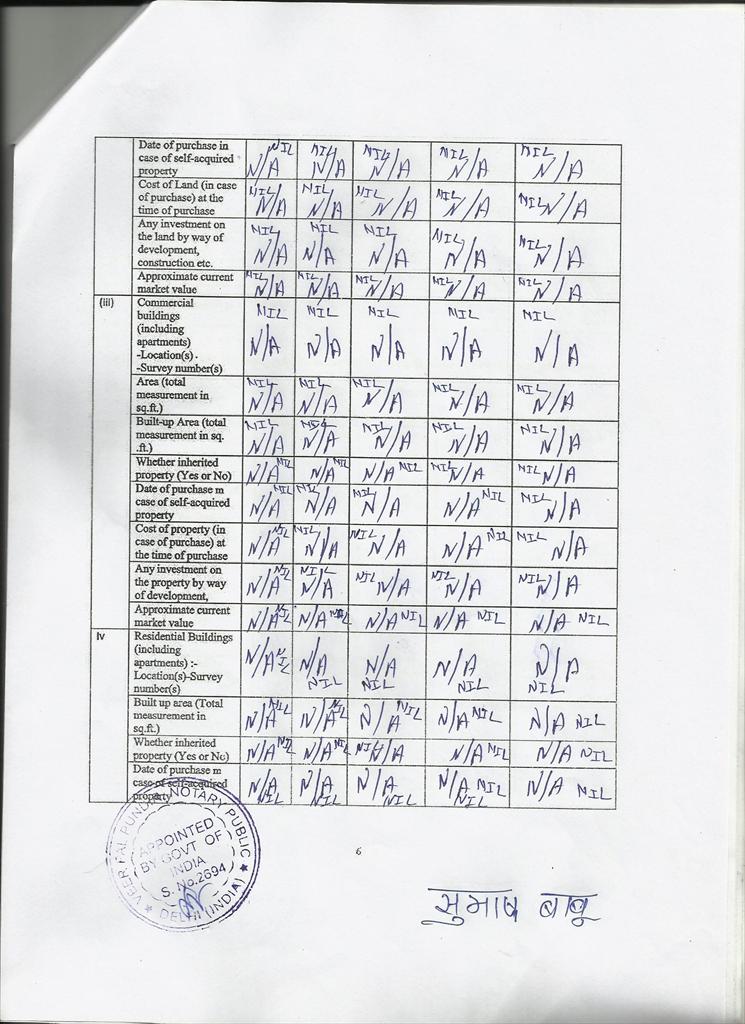 Date of purchase in NIL NIL NIL NIL NIL
case of self-acquired N/A N/A N/A N/A N/A
property
Cost of Land (in case NIL NIL NIL NIL NIL
of purchase) at the N/A N/A N/A N/A N/A
time of purchase
Any investment on NIL NIL NIL NIL NIL
the land by way of N/A N/A N/A N/A N/A
development,
construction etc.
Approximate current NIL NIL NIL NIL NIL
market value N/A N/A N/A N/A N/A
(iii) Commercial NIL NIL NIL NIL NIL
buildings
(including
apartments) N/A N/A N/A N/A N/A
-Location(s) .
-Survey number(s)
Area (total NIL NIL NIL NIL NIL
measurement in N/A N/A N/A N/A N/A
sq.ft.)
Built-up Area (total NIL NIL NIL NIL NIL
measurement in sq. N/A N/A N/A N/A N/A
.ft.)
Whether inherited NIL NIL NIL NIL NIL
property (Yes or No) N/A N/A N/A N/A N/A
Date of purchase m NIL NIL NIL NIL NIL
case of self-acquired N/A N/A N/A N/A N/A
property
Cost of property (in NIL NIL NIL NIL NIL
case of purchase) at N/A N/A N/A N/A N/A
the time of purchase
Any investment on NIL NIL NIL NIL NIL
the property by way N/A N/A N/A N/A N/A
of development,
Approximate current NIL NIL NIL NIL NIL
market value N/A N/A N/A N/A N/A
Iv Residential Buildings
(including N/A NIL N/A N/A N/A N/A
apartments) :-
Location(s)-Survey NIL NIL NIL NIL
number(s)
Built up area (Total NIL NIL NIL NIL NIL
measurement in N/A N/A N/A N/A N/A
sq.ft.)
Whether inherited NIL NIL NIL NIL NIL
property (Yes or No) N/A N/A N/A N/A N/A
Date of purchase m
case of self-acquired N/A N/A N/A N/A NIL N/A NIL
property NIL NIL NIL NIL
NOTARY PUBLIC
APPOINTED
BY GOVT OF
INDIA
S. No.2694
★ DELHI (INDIA) ★
6
सुभाष बाबू